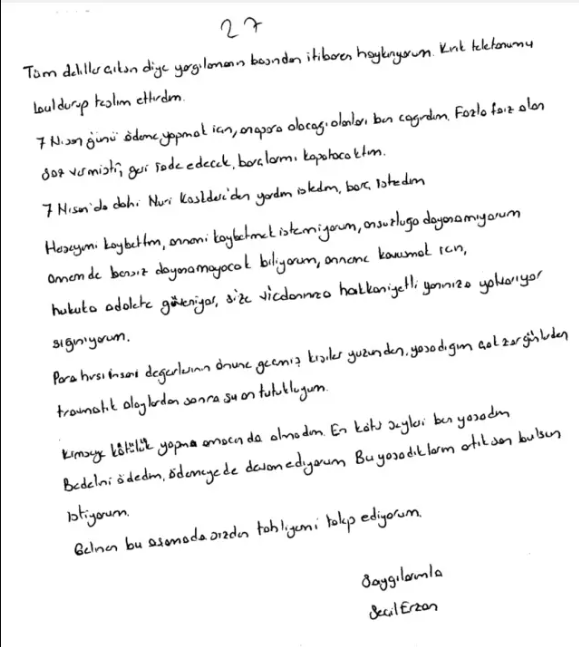 27
Tüm deliller çıksın diye yargılamanın başından itibaren haykırıyorum. Kırık telefonumu
buldurup teslim ettirdim.
7 Nisan günü ödeme yapmak için, anapara alacağı olanları ben çağırdım. Fazla faiz alan
söz vermişti, geri iade edecek, borçlarımı kapatacaktım.
7 Nisan'da dahi Nuri'den yardım istedim, borç istedim
kaybettim, annemi kaybetmek istemiyorum, onsuzluğa dayanamıyorum
annem de bensiz dayanamayacak biliyorum, anneme kavuşmak için,
hukuka adalete güveniyor, size vicdanınıza hakkaniyetli yanınıza yakarıyor
sığınıyorum.
Para hırsı insani değerlerinin önüne geçmiş kişiler yüzünden, yaşadığım çok zor günlerden
travmatik olaylardan sonra şu an tutukluyum.
Kimseye kötülük yapma amacım da olmadım. En kötü şeyleri ben yaşadım
Bedelini ödedim, ödemeye de devam ediyorum. Bu yaşadıklarım artık son bulsun
istiyorum.
Gelinen bu aşamada sizden tahliyemi talep ediyorum.
Saygılarımla
Seçil Erzan